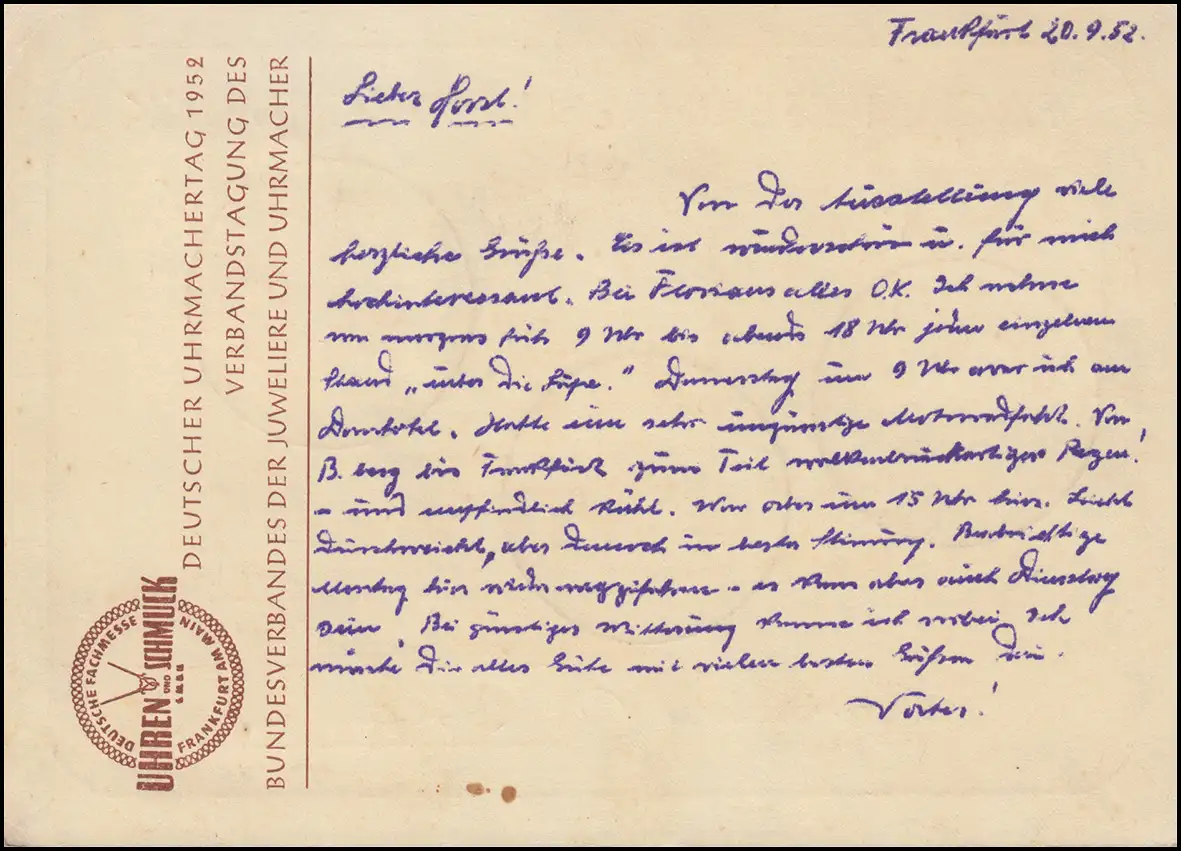 Frankfurt 20.9.52.
Lieber Horst!
Von der Ausstellung viele
herzliche Grüße. Es ist wunderschön u. für mich
hochinteressant. Bei Florians alles O.K. Ich nehme
von morgens früh 9 Uhr bis abends 18 Uhr jeden einzelnen
Stand „unter die Lupe." Donnerstag um 9 Uhr war ich am
Hatte eine sehr ungünstige Motorradfahrt. Von
B.berg bis Frankfurt zum Teil wolkenbruchartiger Regen!
- und empfindlich kühl. War aber um 15 Uhr hier. Leicht
durchweicht, aber dennoch in bester Stimmung. Beabsichtige
Montag hier wieder wegzufahren - es kann aber auch Dienstag
sein. Bei günstiger Witterung komme ich vorbei. Ich
wünsche Dir alles Gute mit vielen besten Grüßen Dein
Vater!
DEUTSCHER UHRMACHERTAG 1952
VERBANDSTAGUNG DES
BUNDESVERBANDES DER JUWELIERE UND UHRMACHER
DEUTSCHE FACHMESSE
UHREN UND SCHMUCK
FRANKFURT AM MAIN